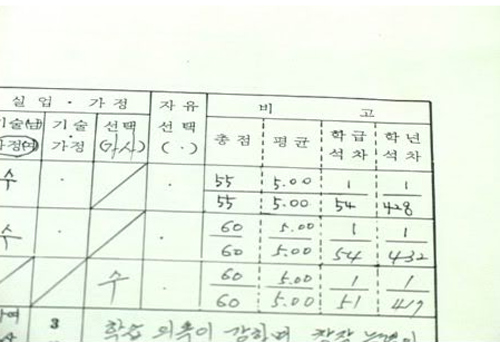 실업·가정 자유 선택 (·) 비고
기술(남) 가정(여) 기술·가정 선택 (가사) 총점 평균 학급석차 학년석차
수 · · 55/55 5.00/5.00 1/54 1/428
수 · · 60/60 5.00/5.00 1/54 1/432
수 · 60/60 5.00/5.00 1/51 1/417
3 학습 의욕이 강하며